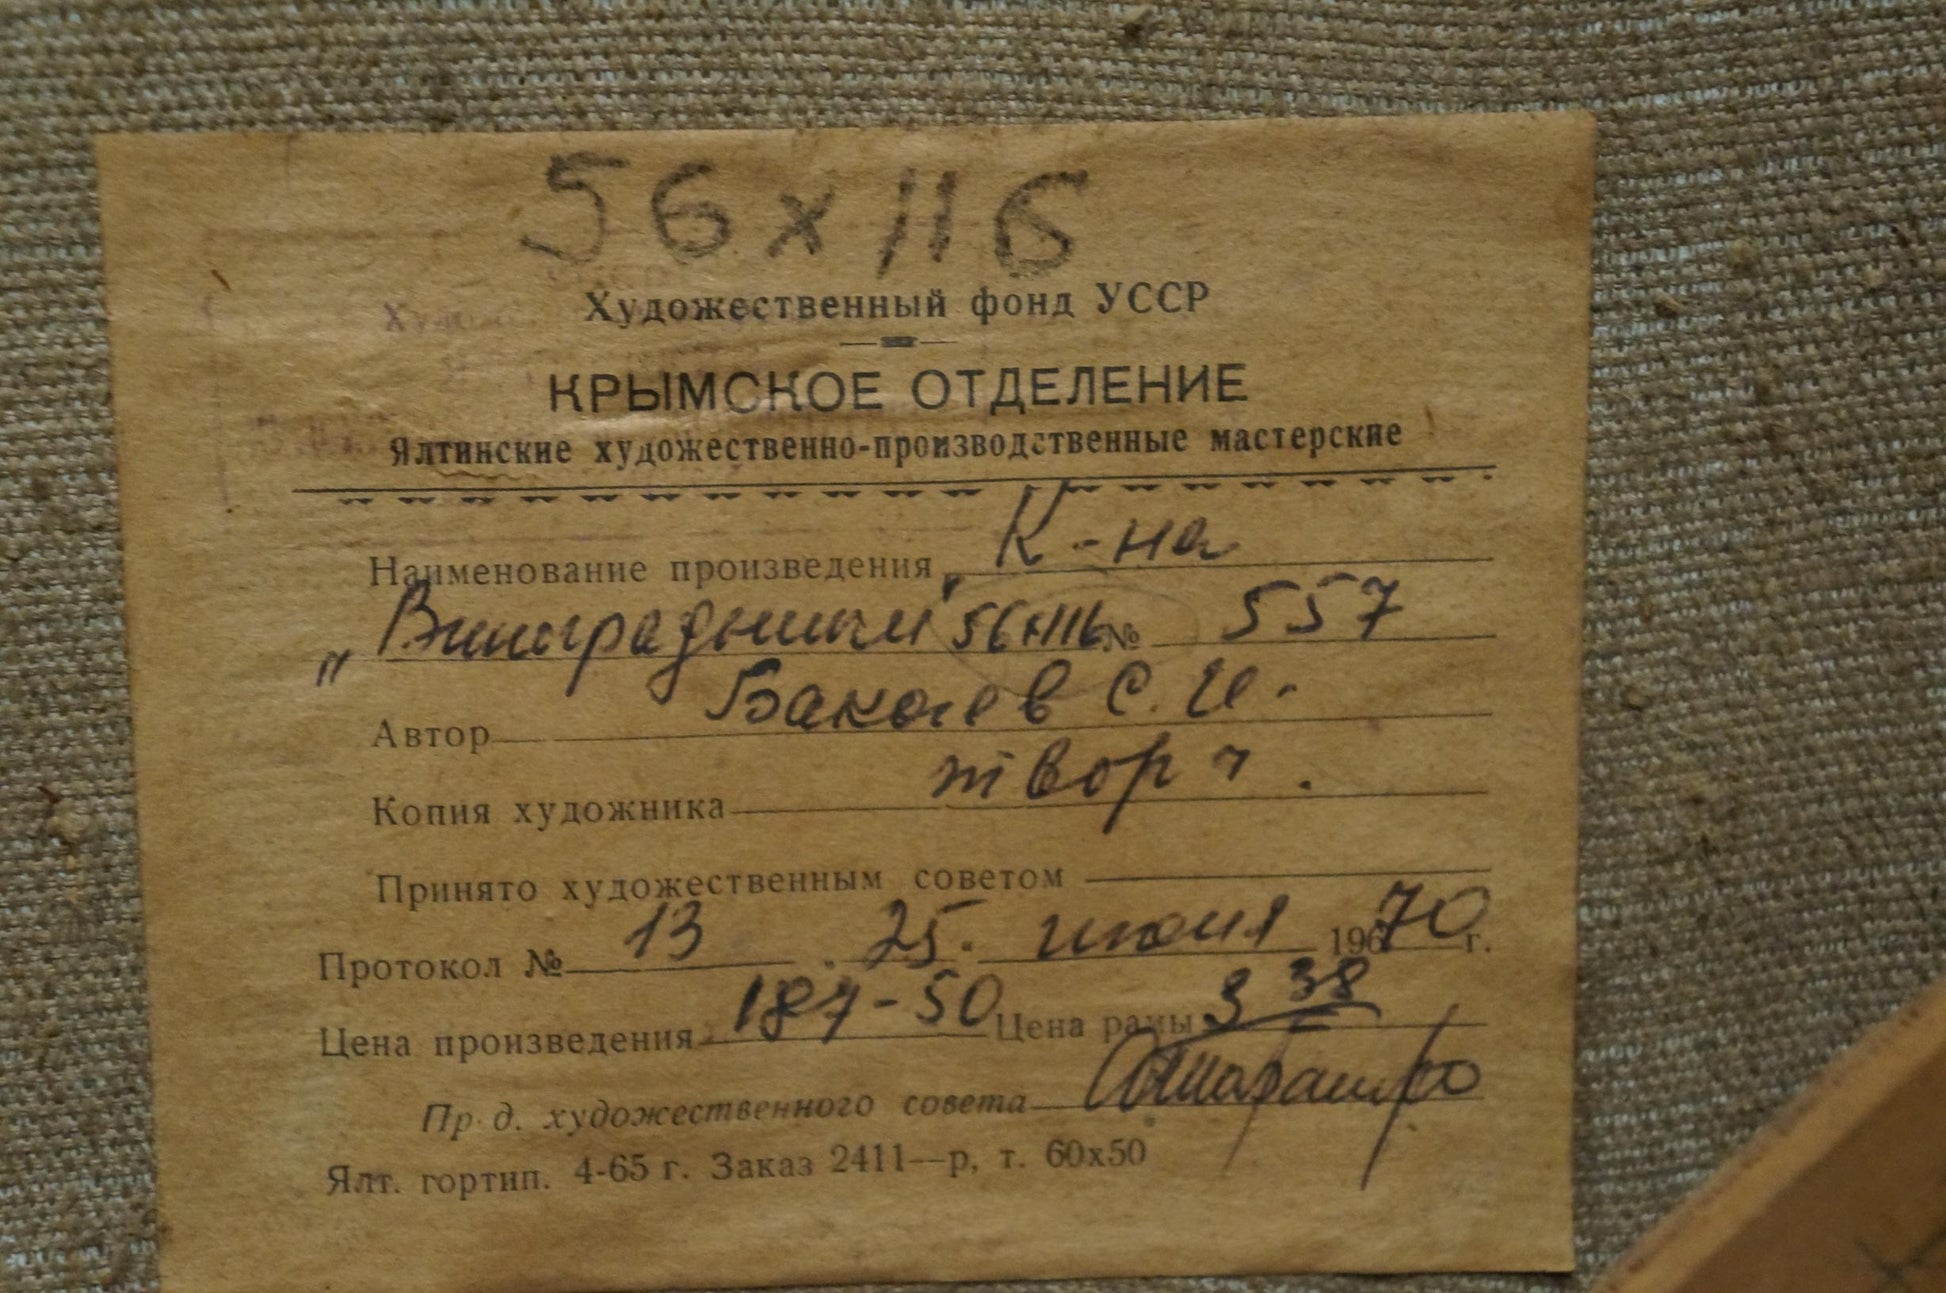 56 х 116
Художественный фонд УССР
КРЫМСКОЕ ОТДЕЛЕНИЕ
Ялтинские художественно-производственные мастерские
Наименование произведения К-на
56х116 № 557
Автор С. И.
Копия художника творч.
Принято художественным советом
Протокол № 13 . 25. июня 19670 г.
Цена произведения 187-50 Цена рамы 3 38
Пр д. художественного совета
Ялт. гортип. 4-65 г. Заказ 2411—р, т. 60х50